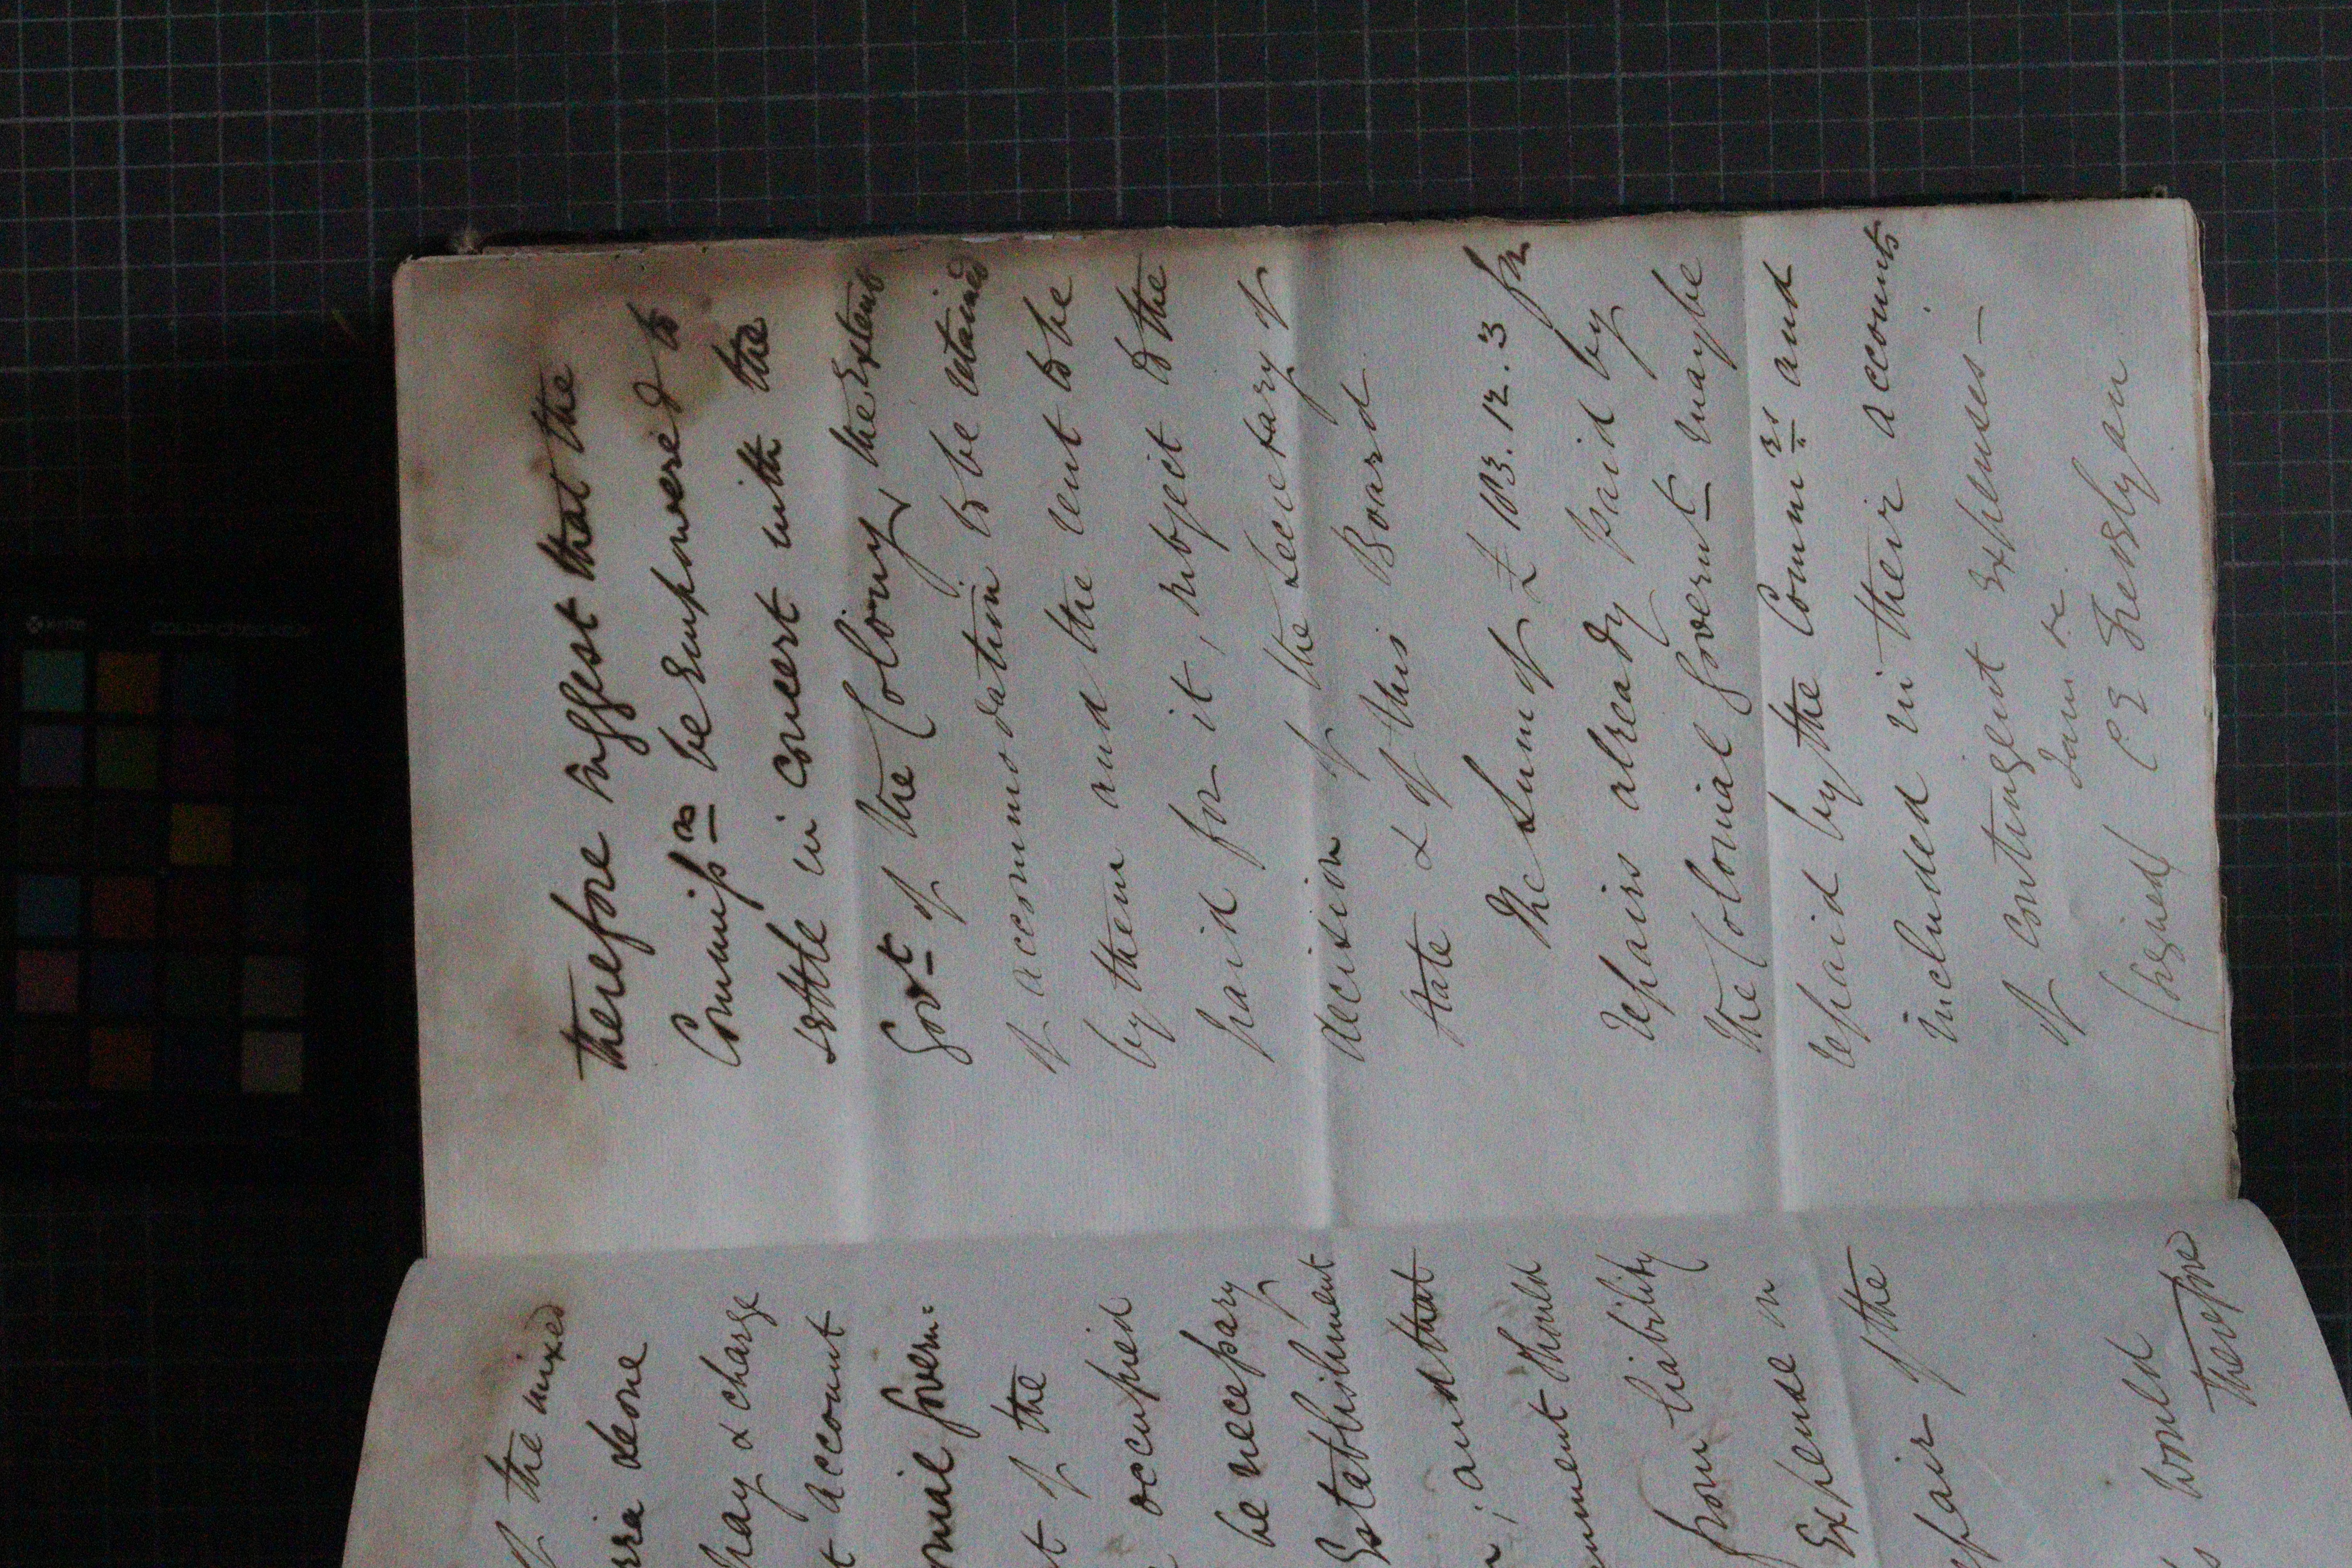 of the mixed
done
pay & charge
account
onial Govern:
of the
occupied
be necessary
Establishment
; and that
nment should
from liability
Expense in
repair of the
would
therefore
therefore suggest that the
Commiss.rs be empowered to
settle in concert with the
Govt of the Colony, the extent
of accommodation to be retained
by them and the rent to be
paid for it, subject to the
decision of the Secretary of
State & of this Board
The Sum of £ 183.12.3 for
repairs already paid by
the Colonial Governt may be
repaid by the Commrs and
included in their accounts
of contingent expenses —
I am &c
(signed) C E Trevelyan
x-rite
colorchecker